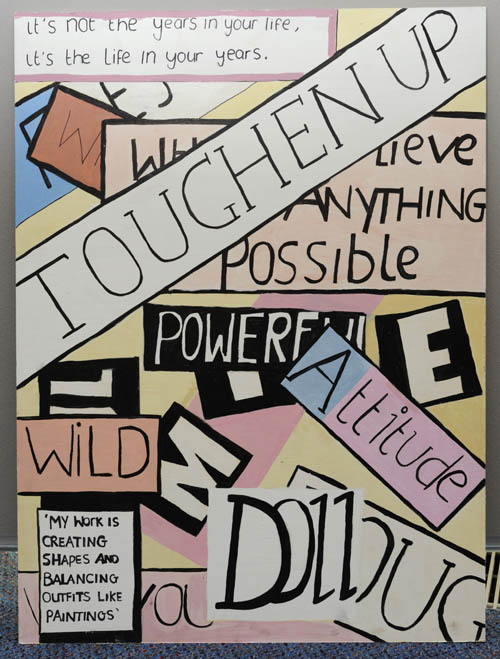 it's not the years in your life,
it's the life in your years.
TOUGHEN UP
ANYTHING
Possible
POWERFUL
E
Attitude
WiLD
M
DOll
'MY WORK IS
CREATING
SHAPES AND
BALANCING
OUTFITS LIKE
PAINTINGS'
YOU
OUG